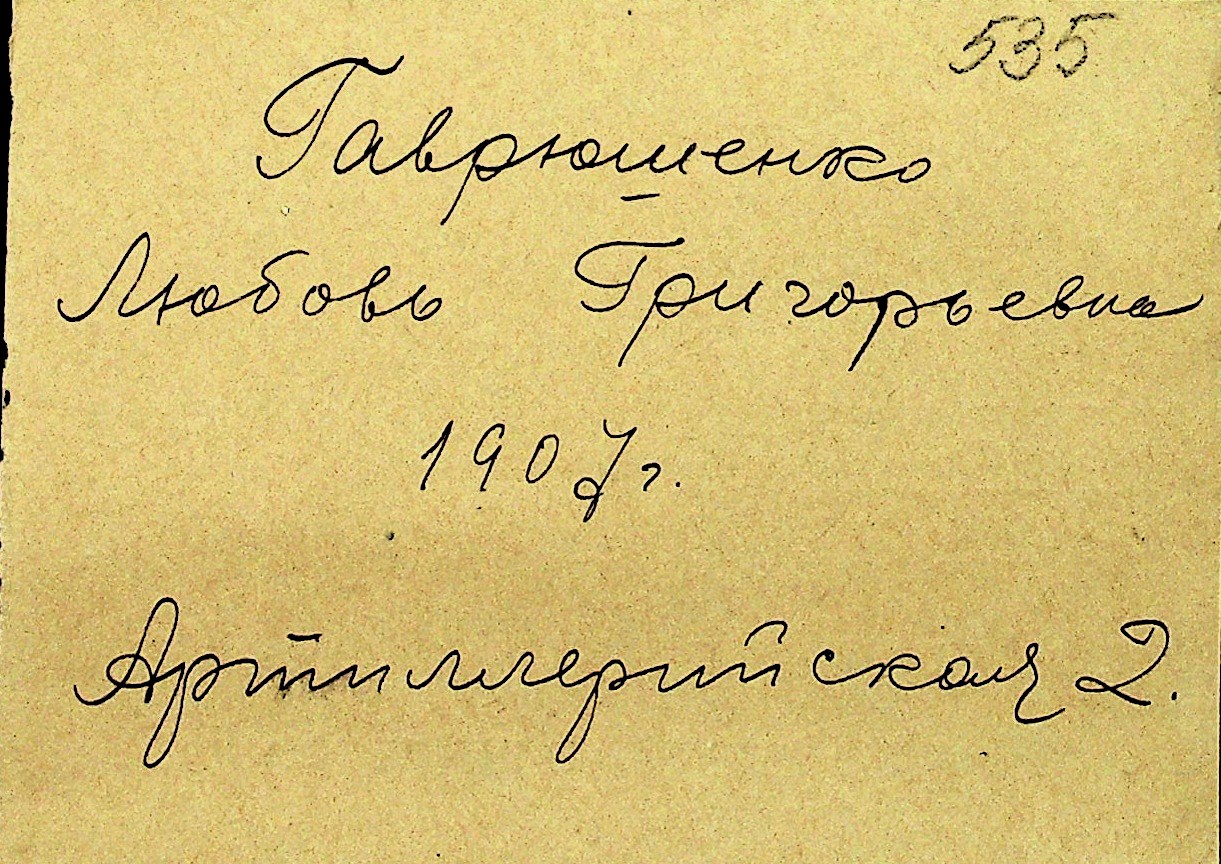 535
Гаврюшенко
Любовь Григорьевна
1907г.
Артиллерийская 2.